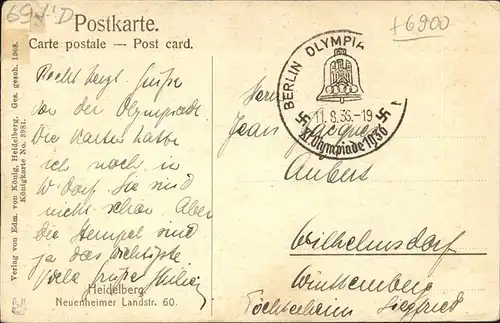 691.D
+6900
Postkarte.
Carte postale — Post card.
BERLIN OLYMPIA
11.8.36.-19
XI. Olympiade 1936
Recht herzl. Grüße
von der Olympiastadt.
Die Karten hatte
ich noch in
W'dorf. Sie sind
nicht schön. Aber
die Stempel sind
ja das wichtigste
Viele Grüße
Herrn
Jean Jacques
Aubert
Wilhelmsdorf
Württemberg
Töchterheim Siegfried
Heidelberg
Neuenheimer Landstr. 60.
Verlag von Edm. von König, Heidelberg. Ges. gesch. 1908.
Königkarte No. 3981.